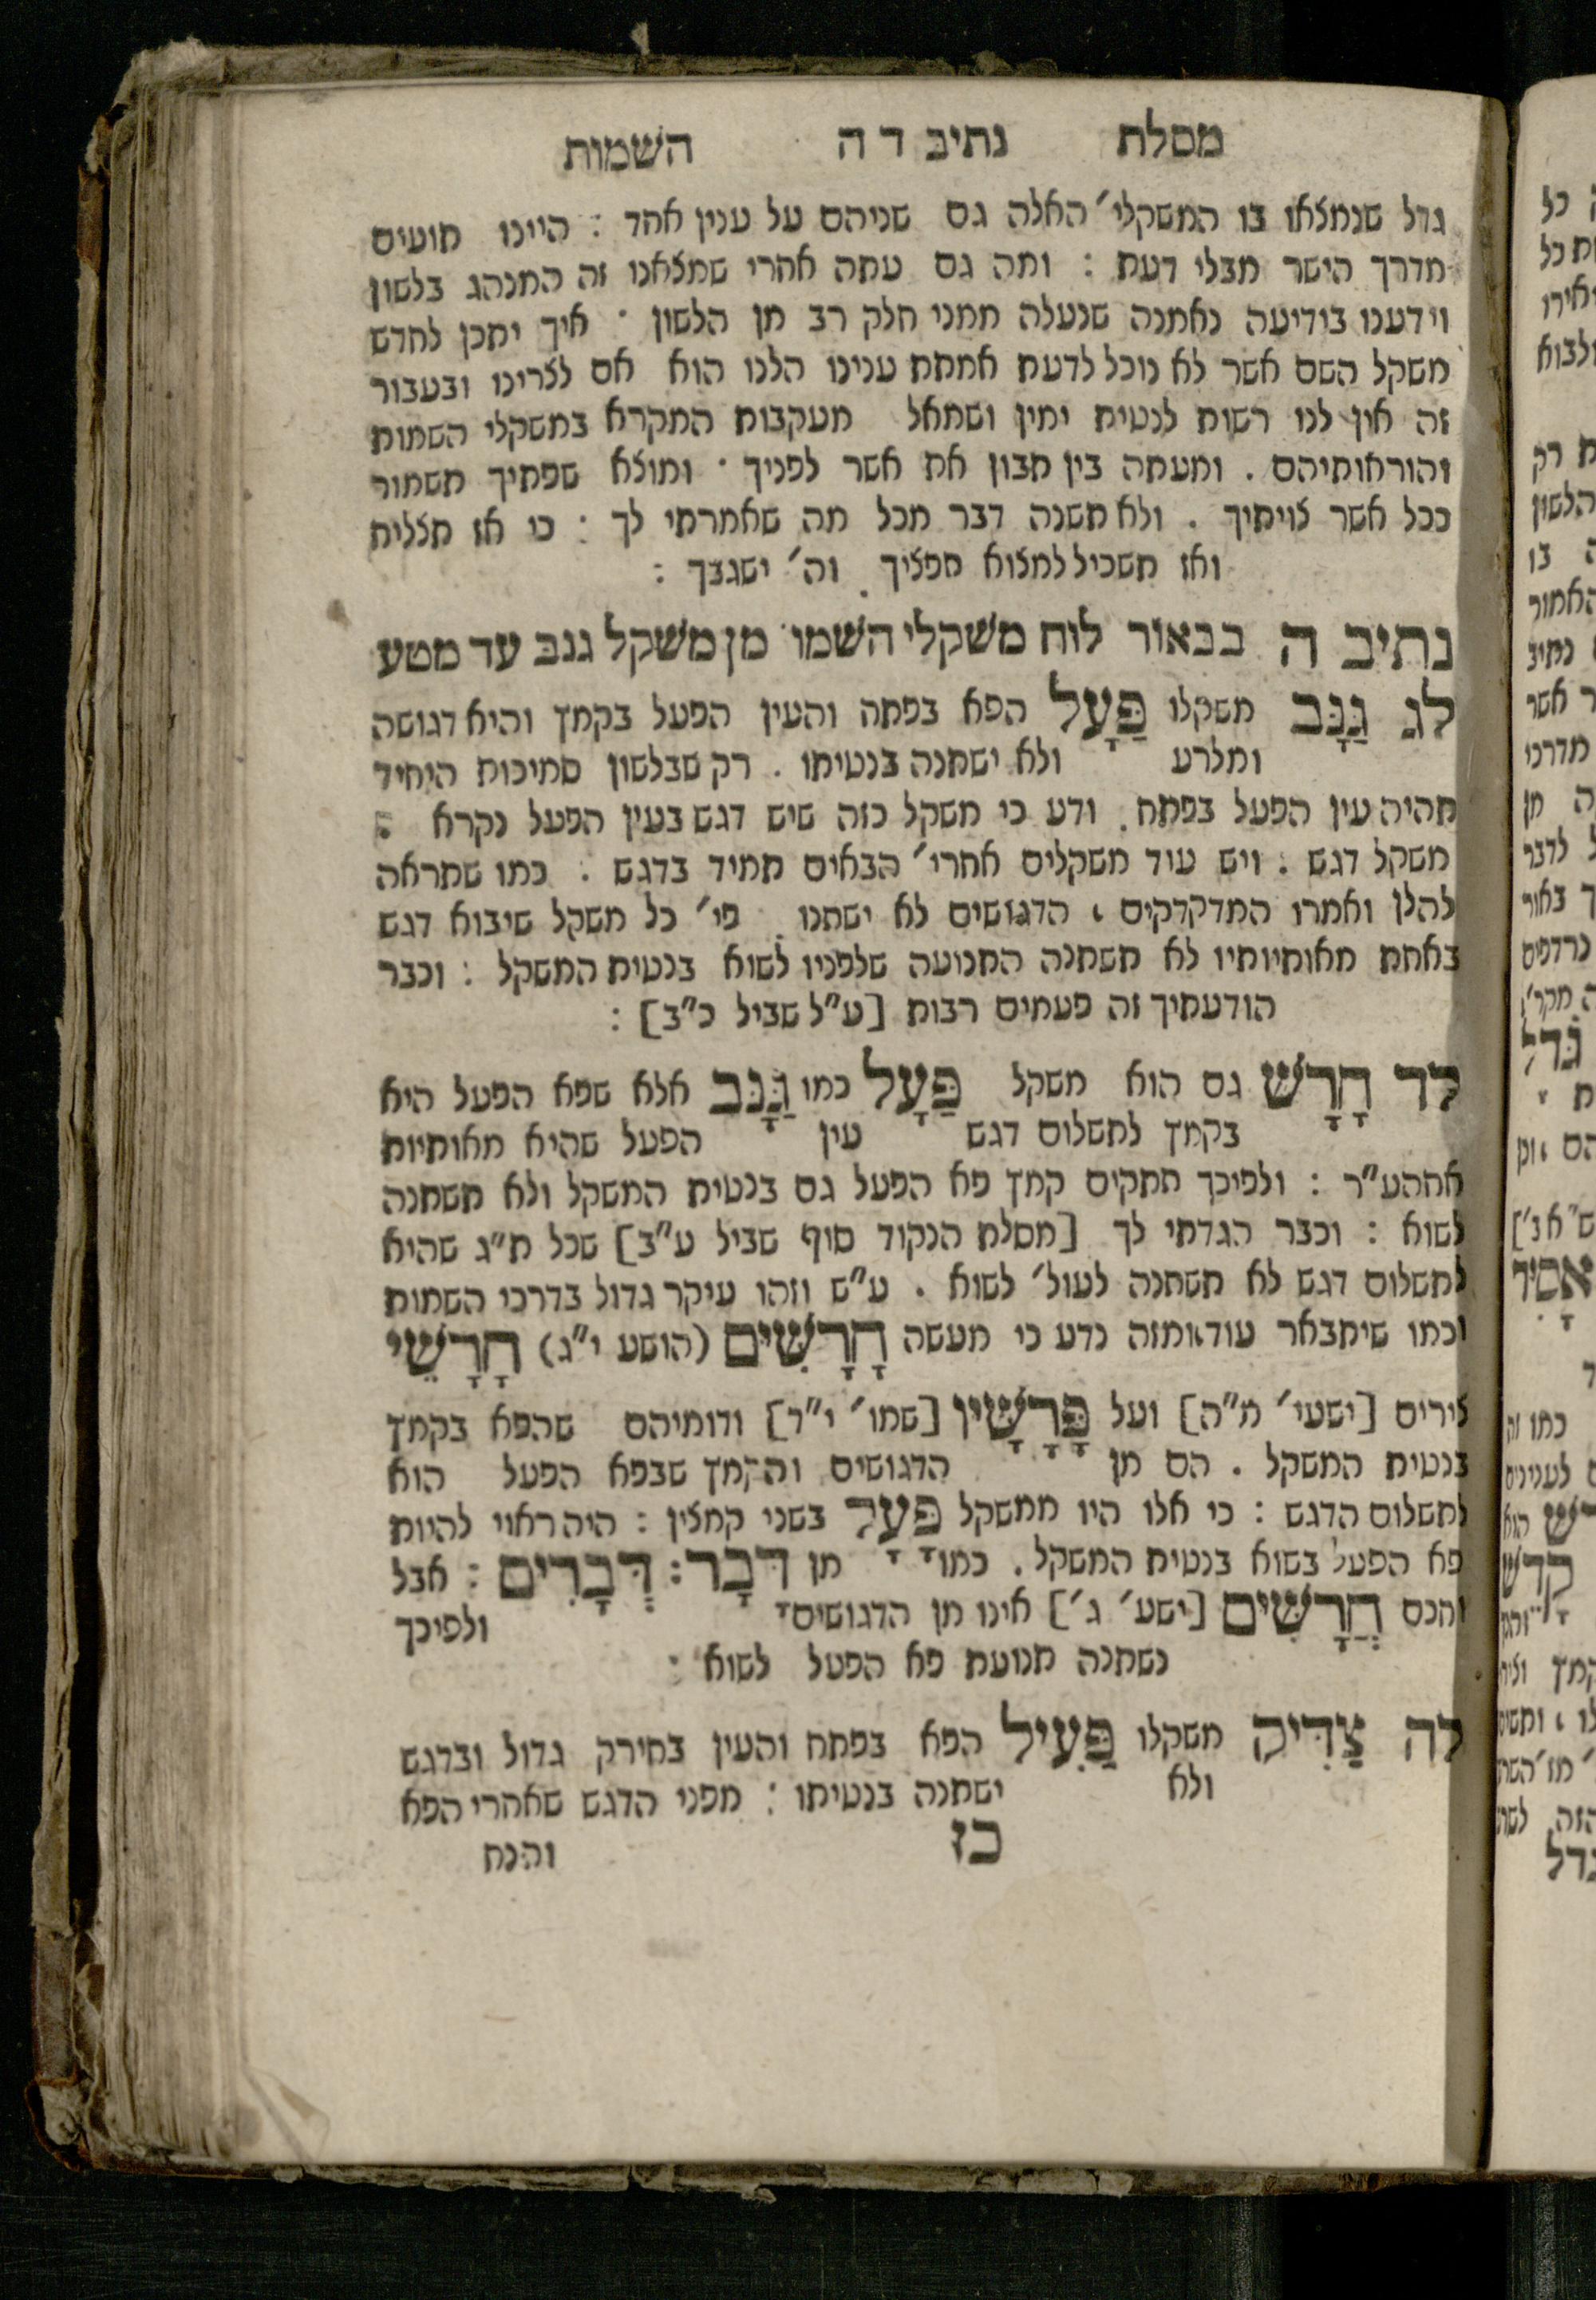 מסלת נתיב ד ה השמות
גדל שנמצאו בו המשקלי׳ האלה גם שניהם על ענין אחד : היינו תועים
מדרך הישר מבלי דעת : ומה גם עתה אחרי שמצאנו זה המנהג בלשון
וידענו בידיעה נאמנה שנעלה ממני חלק רב מן הלשון · איך יתכן לחדש
משקל השם אשר לא נוכל לדעת אמתת ענינו הלנו הוא אם לצרינו ובעבור
זה אין לנו רשות לנטית ימין ושמאל מעקבות המקרא במשקלי השמות
והוראותיהם . ומעתה בין תבון את אשר לפניך · ומוצא שפתיך תשמור
ככל אשר צויתיך . ולא תשנה דבר מכל מה שאמרתי לך : כי אז תצליח
ואז תשכיל למצוא חפציך . וה׳ ישגבך :
נתיב ה בבאור לוח משקלי השמו׳ מן משקל גנב עד מטע
לג גַּנָּב משקלו פַּעָל הפא בפתח והעין הפעל בקמץ והיא דגושה
ומלרע ולא ישתנה בנטיתו . רק שבלשון סמיכות היחיד
תהיה עין הפעל בפתח . ודע כי משקל כזה שיש דגש בעין הפעל נקרא
משקל דגש . ויש עוד משקלים אחרי׳ הבאים תמיד בדגש : כמו שתראה
להלן ואמרו המדקדקים , הדגושים לא ישתנו . פי׳ כל משקל שיבוא דגש
באחת מאותיותיו לא תשתנה התנועה שלפניו לשוא בנטית המשקל : וכבר
הודעתיך זה פעמים רבות [ע״ל שביל כ״ב] :
לד חָרָשׁ גם הוא משקל פַּעָל כמו גַּנָּב אלא שפא הפעל היא
בקמץ לתשלום דגש עין הפעל שהיא מאותיות
אחהע״ר : ולפיכך תתקים קמץ פא הפעל גם בנטית המשקל ולא תשתנה
לשוא : וכבר הגדתי לך [מסלת הנקוד סוף שביל ע״ב] שכל ת״ג שהיא
לתשלום דגש לא תשתנה לעול׳ לשוא . ע״ש וזהו עיקר גדול בדרכי השמות
וכמו שיתבאר עוד,ומזה נדע כי מעשה חָרָשִׁים (הושע י״ג) חָרָשֵׁי
צירים [ישעי׳ מ״ה] ועל פָּרָשָׁיו [שמו׳ י״ד] ודומיהם שהפא בקמץ
בנטית המשקל . הם מן הדגושים והקמץ שבפא הפעל הוא
לתשלום הדגש : כי אלו היו ממשקל פָּעָל בשני קמצין : היה ראוי להיות
פא הפעל בשוא בנטית המשקל . כמו מן דָּבָר : דְּבָרִים : אבל
והכם חֲרָשִׁים [ישע׳ ג׳] אינו מן הדגושים ולפיכך
נשתנה תנועת פא הפעל לשוא :
לה צַדִּיק משקלו פַּעִיל הפא בפתח והעין בחירק גדול ובדגש
ולא ישתנה בנטיתו : מפני הדגש שאחרי הפא
כז והנח